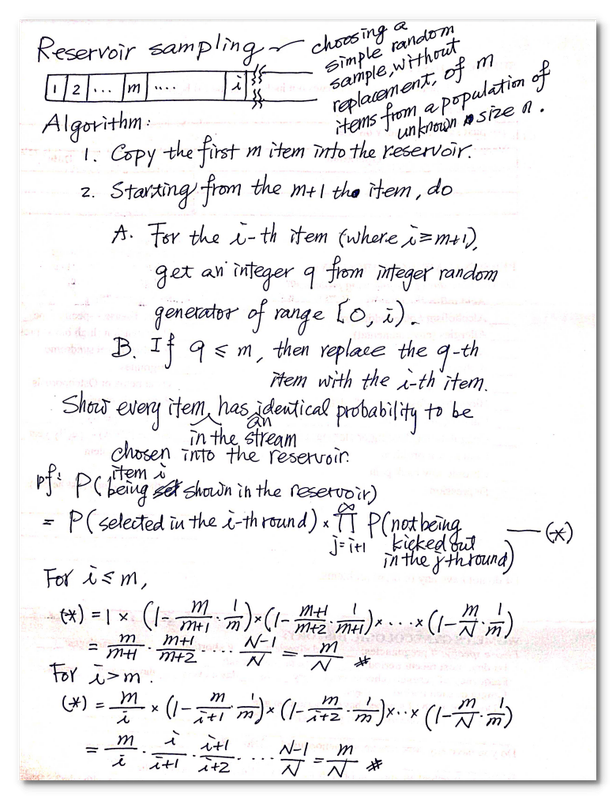 Reservoir sampling
choosing a
simple random
sample, without
replacement, of m
items from a population of
unknown size n.
1 2 ... m .... i
Algorithm:
1. Copy the first m item into the reservoir.
2. Starting from the m+1 th item, do
A. For the i-th item (where i ≥ m+1),
get an integer q from integer random
generator of range [0, i).
B. If q ≤ m, then replace the q-th
item with the i-th item.
Show every item has an identical probability to be
in the stream
chosen into the reservoir.
pf: P(item i being shown in the reservoir)
= P(selected in the i-th round) × ∏_{j=i+1}^{∞} P(not being kicked out in the j-th round) — (*)
For i ≤ m,
(*) = 1 × (1 - m/(m+1) · 1/m) × (1 - (m+1)/(m+2) · 1/(m+1)) × ... × (1 - m/N · 1/m)
= m/(m+1) · (m+1)/(m+2) ..... (N-1)/N = m/N #
For i > m.
(*) = m/i × (1 - m/(i+1) · 1/m) × (1 - m/(i+2) · 1/m) × ... × (1 - m/N · 1/m)
= m/i · i/(i+1) · (i+1)/(i+2) .... (N-1)/N = m/N #